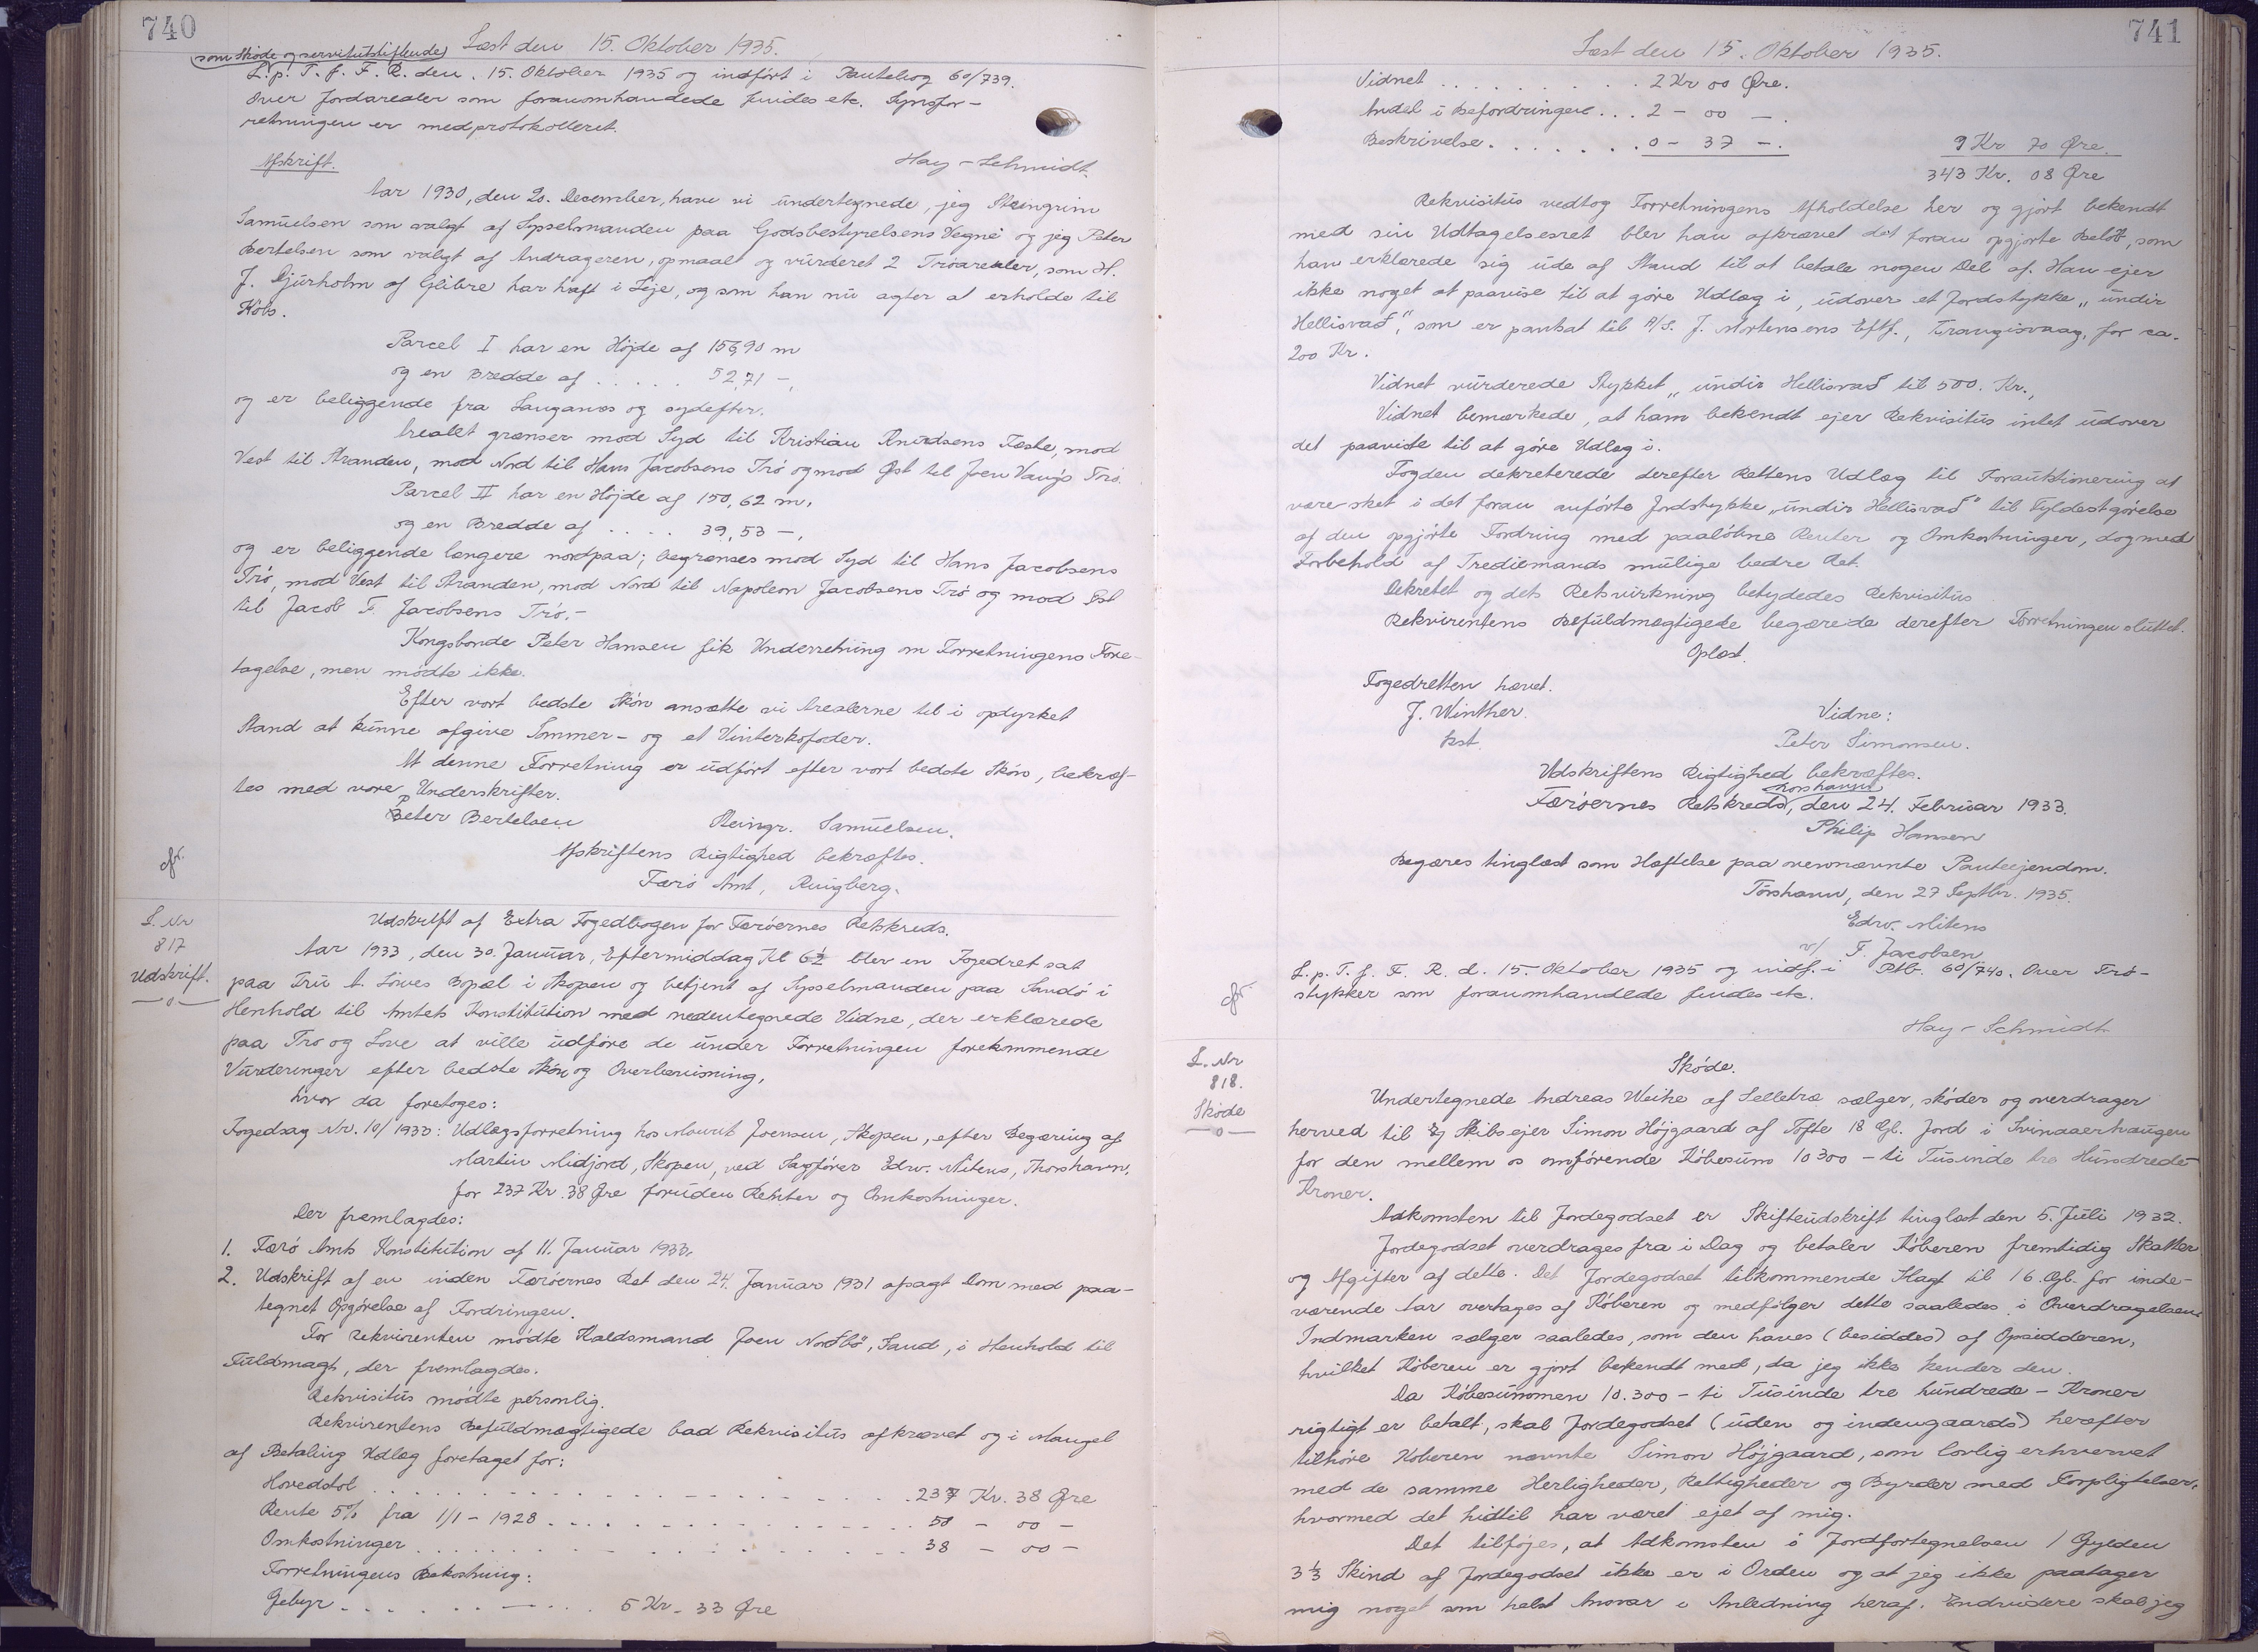 740
Læst den 15. Oktober 1935.
som Skøde og servitutstiftende
L. p. T. f. F. R. den 15. Oktober 1935 og indført i Pantebog 60/739.
Over Jordarealer som foranomhandlede findes etc. Synsfor-
retningen er medprotokolleret.
Hay-Schmidt.
Afskrift.
Aar 1930, den 20. December, have vi undertegnede, jeg Steingrim
Samuelsen som valgt af Sysselmanden paa Godsbestyrelsens Vegne og jeg Peter
Bertelsen som valgt af Andrageren, opmaalt og vurderet 2 Trøarealer, som H.
J. Djurholm af Glibre har haft i Leje, og som han nu agter at erholde til
Købs.
Parcel I har en Højde af 156,90 m
og en Bredde af . . . . . 52,71 -,
og er beliggende fra Langanes og sydefter.
Arealet grænser mod Syd til Kristian Knudsens Fæste, mod
Vest til Stranden, mod Nord til Hans Jacobsens Trø og mod Øst til Joen Vang's Trø.
Parcel II har en Højde af 150,62 m,
og en Bredde af . . . . 39,53 -,
og er beliggende længere nordpaa; begrænses mod Syd til Hans Jacobsens
Trø, mod Vest til Stranden, mod Nord til Napoleon Jacobsens Trø og mod Øst
til Jacob F. Jacobsens Trø.-
Kongsbonde Peter Hansen fik Underretning om Forretningens Fore-
tagelse, men mødte ikke.
Efter vort bedste Skøn ansætte vi Arealerne til i opdyrket
Stand at kunne afgive Sommer- og et Vinterkofoder.
At denne Forretning er udført efter vort bedste Skøn, bekræf-
tes med vore Underskrifter.
Peter Bertelsen Steingr. Samuelsen.
Afskriftens Rigtighed bekræftes.
Færø Amt, Ringberg.
cfr.
L. Nr
817
Udskrift.
Udskrift af Extra Fogedbogen for Færøernes Retskreds.
Aar 1933, den 30. Januar, Eftermiddag Kl 6½ blev en Fogedret sat
paa Fru A. Løves Bopæl i Skopen og betjent af Sysselmanden paa Sandø i
Henhold til Amtets Konstitution med nedentegnede Vidne, der erklærede
paa Tro og Love at ville udføre de under Forretningen forekommende
Vurderinger efter bedste Skøn og Overbevisning,
hvor da foretoges:
Fogedsag Nr. 10/1933: Udlægsforretning hos Mourit Joensen, Skopen, efter Begæring af
Martin Midjord, Skopen, ved Sagfører Edw. Mitens, Thorshavn,
for 237 Kr. 38 Øre foruden Renter og Omkostninger.
Der fremlagdes:
1. Færø Amts Konstitution af 11. Januar 1933.
2. Udskrift af en inden Færøernes Ret den 24. Januar 1931 afsagt Dom med paa-
tegnet Opgørelse af Fordringen.
For Rekvirenten mødte Kaldsmand Joen Norðbø, Sand, i Henhold til
Fuldmagt, der fremlagdes.
Rekvisitus mødte personlig.
Rekvirentens Befuldmægtigede bad Rekvisitus afkrævet og i Mangel
af Betaling Udlæg foretaget for:
Hovedstol . . . . . . 237 Kr. 38 Øre
Rente 5% fra 1/1 - 1928 . . . . . . 50 - 00 -
Omkostninger . . . . . . 38 - 00 -
Forretningens Bekostning:
Gebyr . . . . . . 5 Kr. 33 Øre
741
Læst den 15. Oktober 1935.
Vidnet . . . . . . 2 Kr 00 Øre.
Andel i Befordringen . . . 2 - 00 -.
Beskrivelse . . . . . . 0 - 37 -. 9 Kr 70 Øre.
343 Kr. 08 Øre
Rekvisitus vedtog Forretningens Afholdelse her og gjort bekendt
med sin Udtagelsesret blev han afkrævet det foran opgjorte Beløb, som
han erklærede sig ude af Stand til at betale nogen Del af. Han ejer
ikke noget at paavise til at gøre Udlæg i, udover et Jordstykke „undir
Hellisvað", som er pantsat til A/S. J. Mortensens Eftf., Trangisvaag, for ca.
200 Kr.
Vidnet vurderede Stykket „undir Hellisvað til 500. Kr.,
Vidnet bemærkede, at ham bekendt ejer Rekvisitus intet udover
det paaviste til at gøre Udlæg i.
Fogden dekreterede derefter Rettens Udlæg til Forauktionering at
være sket i det foran anførte Jordstykke „undir Hellisvað" til Fyldestgørelse
af den opgjorte Fordring med paaløbne Renter og Omkostninger, dog med
Forbehold af Tredjemands mulige bedre Ret.
Dekretet og dets Retsvirkning betydedes Rekvisitus
Rekvirentens Befuldmægtigede begærede derefter Forretningen sluttet.
Oplæst.
Fogedretten hævet.
J. Winther. Vidne:
kst. Peter Simonsen.
Udskriftens Rigtighed bekræftes.
Thorshavn
Færøernes Retskreds, den 24. Februar 1933.
Philip Hansen
Begæres tinglæst som Hæftelse paa ovennævnte Panteejendom.
Tórshavn, den 27 Septbr. 1935.
Edw. Mitens
v/ F. Jacobsen
L. p. T. f. F. R. d. 15. Oktober 1935 og indf. i Ptb. 60/740. Over Trø-
stykker som foranomhandlede findes etc.
cfr.
Hay-Schmidt.
L. Nr
818.
Skøde
Skøde.
Undertegnede Andreas Weihe af Selletræ sælger, skøder og overdrager
herved til Skibsejer Simon Højgaard af Tofte 18 Gl. Jord i Svinaaerhaugen
for den mellem os omførende Købesum 10300 - ti Tusinde tre Hundrede
Kroner.
Adkomsten til Jordegodset er Skifteudskrift tinglæst den 5. Juli 1932.
Jordegodset overdrages fra i Dag og betaler Køberen fremtidig Skatter
og Afgifter af dette. Det Jordegodset tilkommende Hagt til 16. Ogl. for inde-
værende Aar overtages af Køberen og medfølger dette saaledes i Overdragelsen.
Indmarken sælger saaledes, som den haves (besiddes) af Opsidderen,
hvilket Køberen er gjort bekendt med, da jeg ikke kender den.
Da Købesummen 10.300 - ti Tusinde tre hundrede - Kroner
rigtigt er betalt, skal Jordegodset (uden og indengaards) herefter
tilhøre Køberen nævnte Simon Højgaard, som lovlig erhvervet
med de samme Herligheder, Rettigheder og Byrder med Forpligtelser,
hvormed det hidtil har været ejet af mig.
Det tilføjes, at Adkomsten i Jordfortegnelsen 1 Gylden
3⅓ Skind af Jordegodset ikke er i Orden og at jeg ikke paatager
mig noget som helst Ansvar i Anledning heraf. Endvidere skal jeg